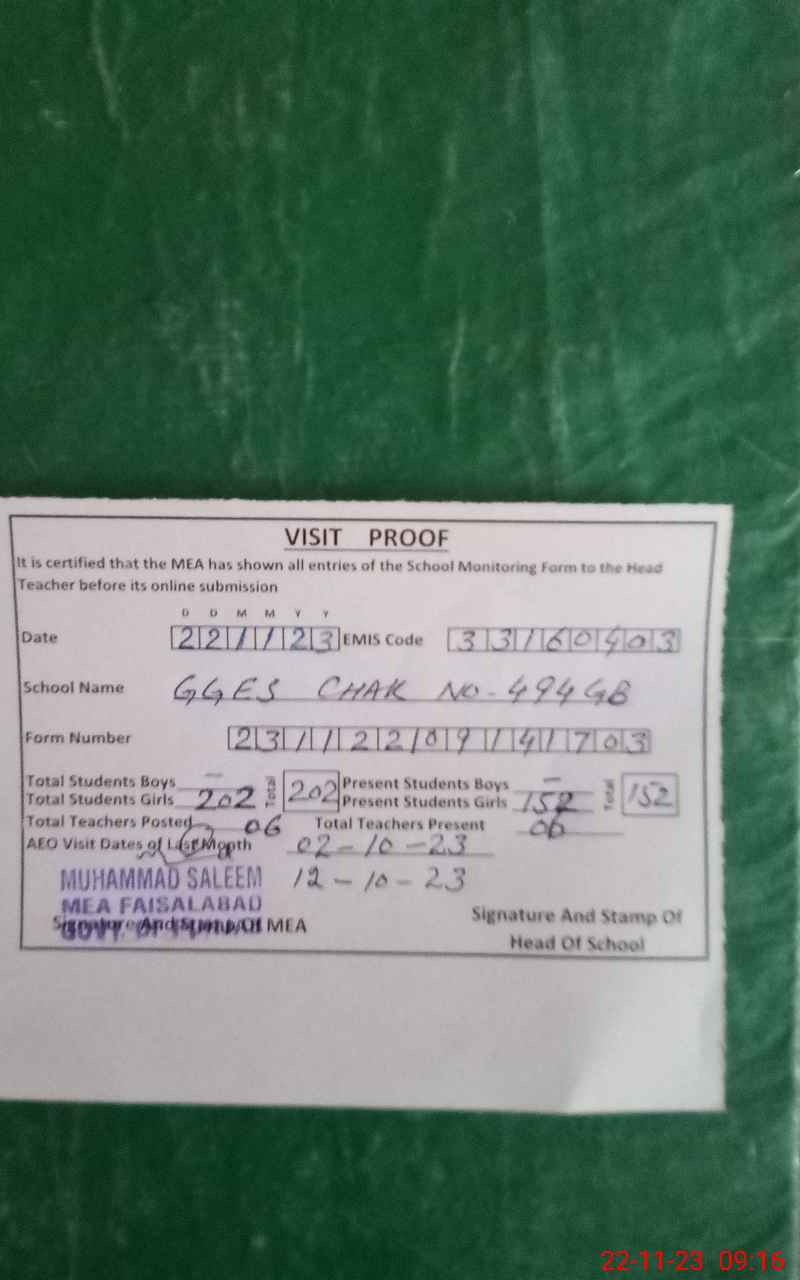 VISIT PROOF
It is certified that the MEA has shown all entries of the School Monitoring Form to the Head
Teacher before its online submission
D D M M Y Y
Date 221123 EMIS Code 33160403
School Name GGES CHAK NO-494GB
Form Number 23112209141703
Total Students Boys — Total 202 Present Students Boys — Total 152
Total Students Girls 202 Present Students Girls 152
Total Teachers Posted 06 Total Teachers Present 06
AEO Visit Dates of Last Month 02-10-23
MUHAMMAD SALEEM 12-10-23
MEA FAISALABAD
Signature And Stamp Of MEA Signature And Stamp Of
Head Of School
22-11-23 09:16